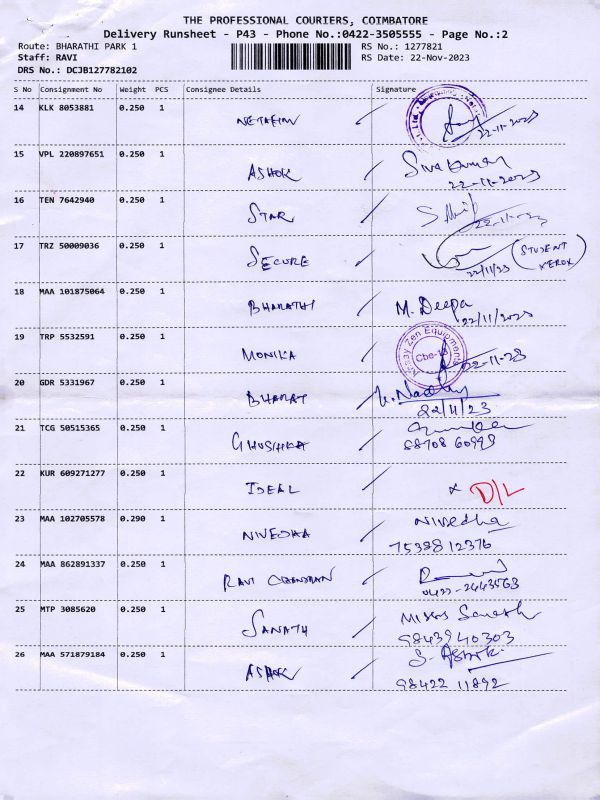 THE PROFESSIONAL COURIERS, COIMBATORE
Delivery Runsheet - P43 - Phone No.:0422-3505555 - Page No.:2
Route: BHARATHI PARK 1 RS No.: 1277821
Staff: RAVI RS Date: 22-Nov-2023
DRS No.: DCJB127782102
S No Consignment No Weight PCS Consignee Details Signature
14 KLK 8053881 0.250 1 NETAFIM 22-11-2023
15 VPL 220897651 0.250 1 ASHOK Sivakumar 22-11-2023
16 TEN 7642940 0.250 1 STAR 22-11-23
17 TRZ 50009036 0.250 1 SECURE 22/11/23 (STUDENT XEROX)
18 MAA 101875064 0.250 1 BHARATHI M. Deepa 22/11/2023
19 TRP 5532591 0.250 1 MONIKA Zen Equipments Cbe-13 22-11-23
20 GDR 5331967 0.250 1 BHARAT 22/11/23
21 TCG 50515365 0.250 1 GHUSHKA 88708 60993
22 KUR 609271277 0.250 1 IDEAL x D/L
23 MAA 102705578 0.290 1 NIVEDHA Nivedha 7538812376
24 MAA 862891337 0.250 1 RAVI CHANDRAN 0422-2443563
25 MTP 3085620 0.250 1 SANATH 9843940303
26 MAA 571879184 0.250 1 ASHOK S. Ashok 98422 11892